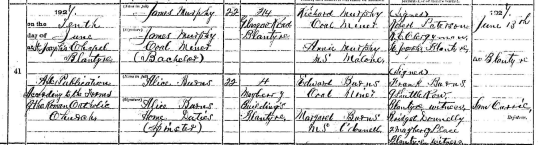 1927,
on the Tenth
day of June
at St Joseph's Chapel
Blantyre
After Publication
according to the Forms
of the Roman Catholic
Church
41
(Name in full)
James Murphy
(Signature)
James Murphy
Coal Miner
(Bachelor)
(Name in full)
Alice Burns
(Signature)
Alice Burns
Home Duties
(Spinster)
22
22
Glasgow Road
Blantyre
4
Buildings
Blantyre
Richard Murphy
Coal Miner
Annie Murphy
M.S. Malone
Edward Burns
Coal Miner
Margaret Burns
M.S. O'Donnell
(Signed)
Paterson
Clergyman
St Josephs, Blantyre
(Signed)
Frank Burns
Blantyre witness
Bridget Donnelly
Place
Blantyre witness
1927,
June 13th
at Blantyre
Registrar.